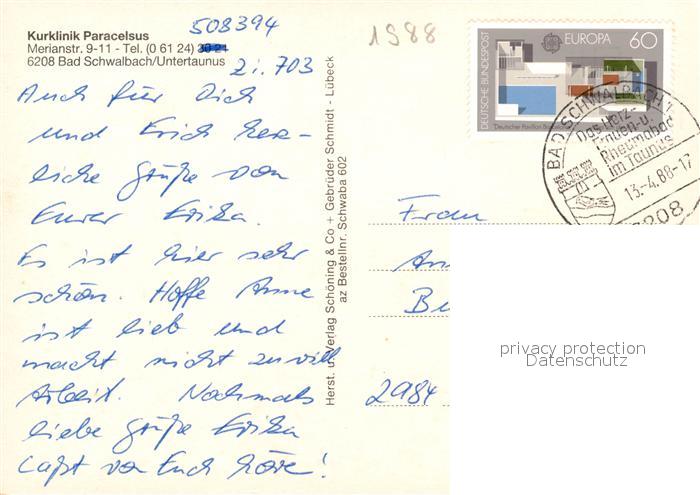 508394
1988
Kurklinik Paracelsus
Merianstr. 9-11 - Tel. (0 61 24) 30 21
6208 Bad Schwalbach/Untertaunus
Zi. 703
Auch für Dich
und Erich herz-
liche Grüße von
Eurer Erika.
Es ist hier sehr
schön. Hoffe Anne
ist lieb und
macht nicht zu viel
Arbeit. Nochmals
liebe Grüße Erika
Laßt von Euch hören!
Herst. u. Verlag Schöning & Co + Gebrüder Schmidt - Lübeck
az Bestellnr. Schwaba 602
DEUTSCHE BUNDESPOST
EUROPA 60
Deutscher Pavillon
BAD SCHWALBACH 1
Das Herz-
Frauen-u.
Rheumabad
im Taunus
13.-4.88-17
6208
Frau
An
2984
privacy protection
Datenschutz